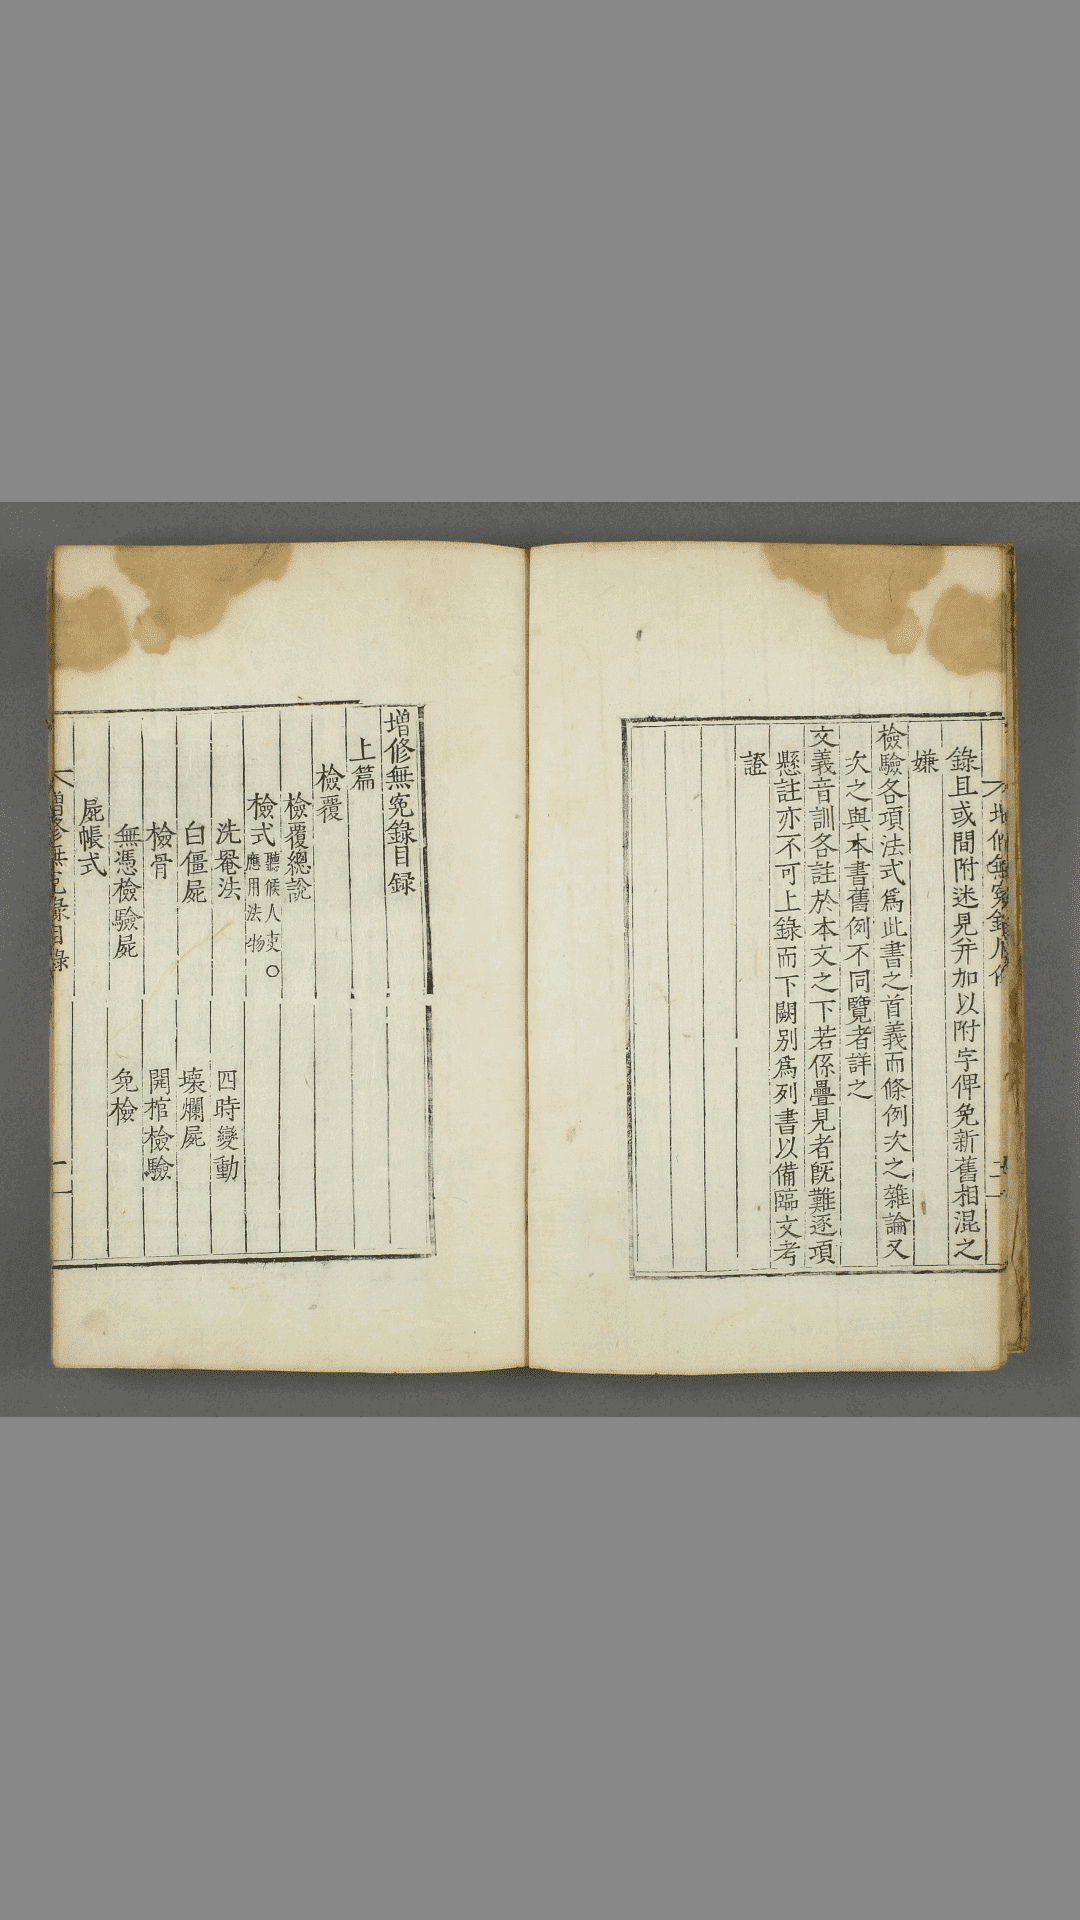 錄且或間附迷見并加以附字俾免新舊相混之
嫌
檢驗各項法式爲此書之首義而條例次之雜論又
次之與本書舊例不同覽者詳之
文義音訓各註於本文之下若係疊見者旣難逐項
懸註亦不可上錄而下闕別爲列書以備臨文考
證
增修無冤錄目録
上篇
檢覆
檢覆總說
檢式 聽候人吏 應用法物 ○
洗罨法 四時變動
白僵屍 壞爛屍
檢骨 開棺檢驗
無憑檢驗屍 免檢
屍帳式
增修無冤錄目錄 一